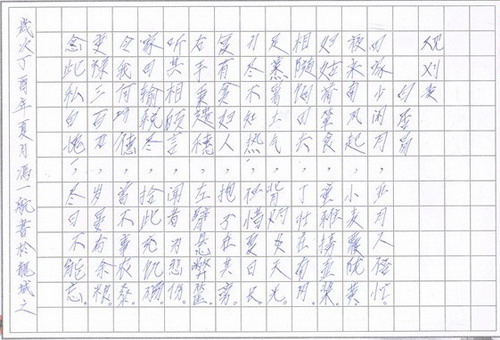 观刈麦
田家少闲月,五月人倍忙。
夜来南风起,小麦覆陇黄。
妇姑荷箪食,童稚携壶浆。
相随饷田去,丁壮在南冈。
足蒸暑土气,背灼炎天光。
力尽不知热,但惜夏日长。
复有贫妇人,抱子在其旁。
右手秉遗穗,左臂悬敝筐。
听其相顾言,闻者为悲伤。
家田输税尽,拾此充饥肠。
今我何功德,曾不事农桑。
吏禄三百石,岁晏有余粮。
念此私自愧,尽日不能忘。
歲次丁酉年夏月馮一航書於龍城之